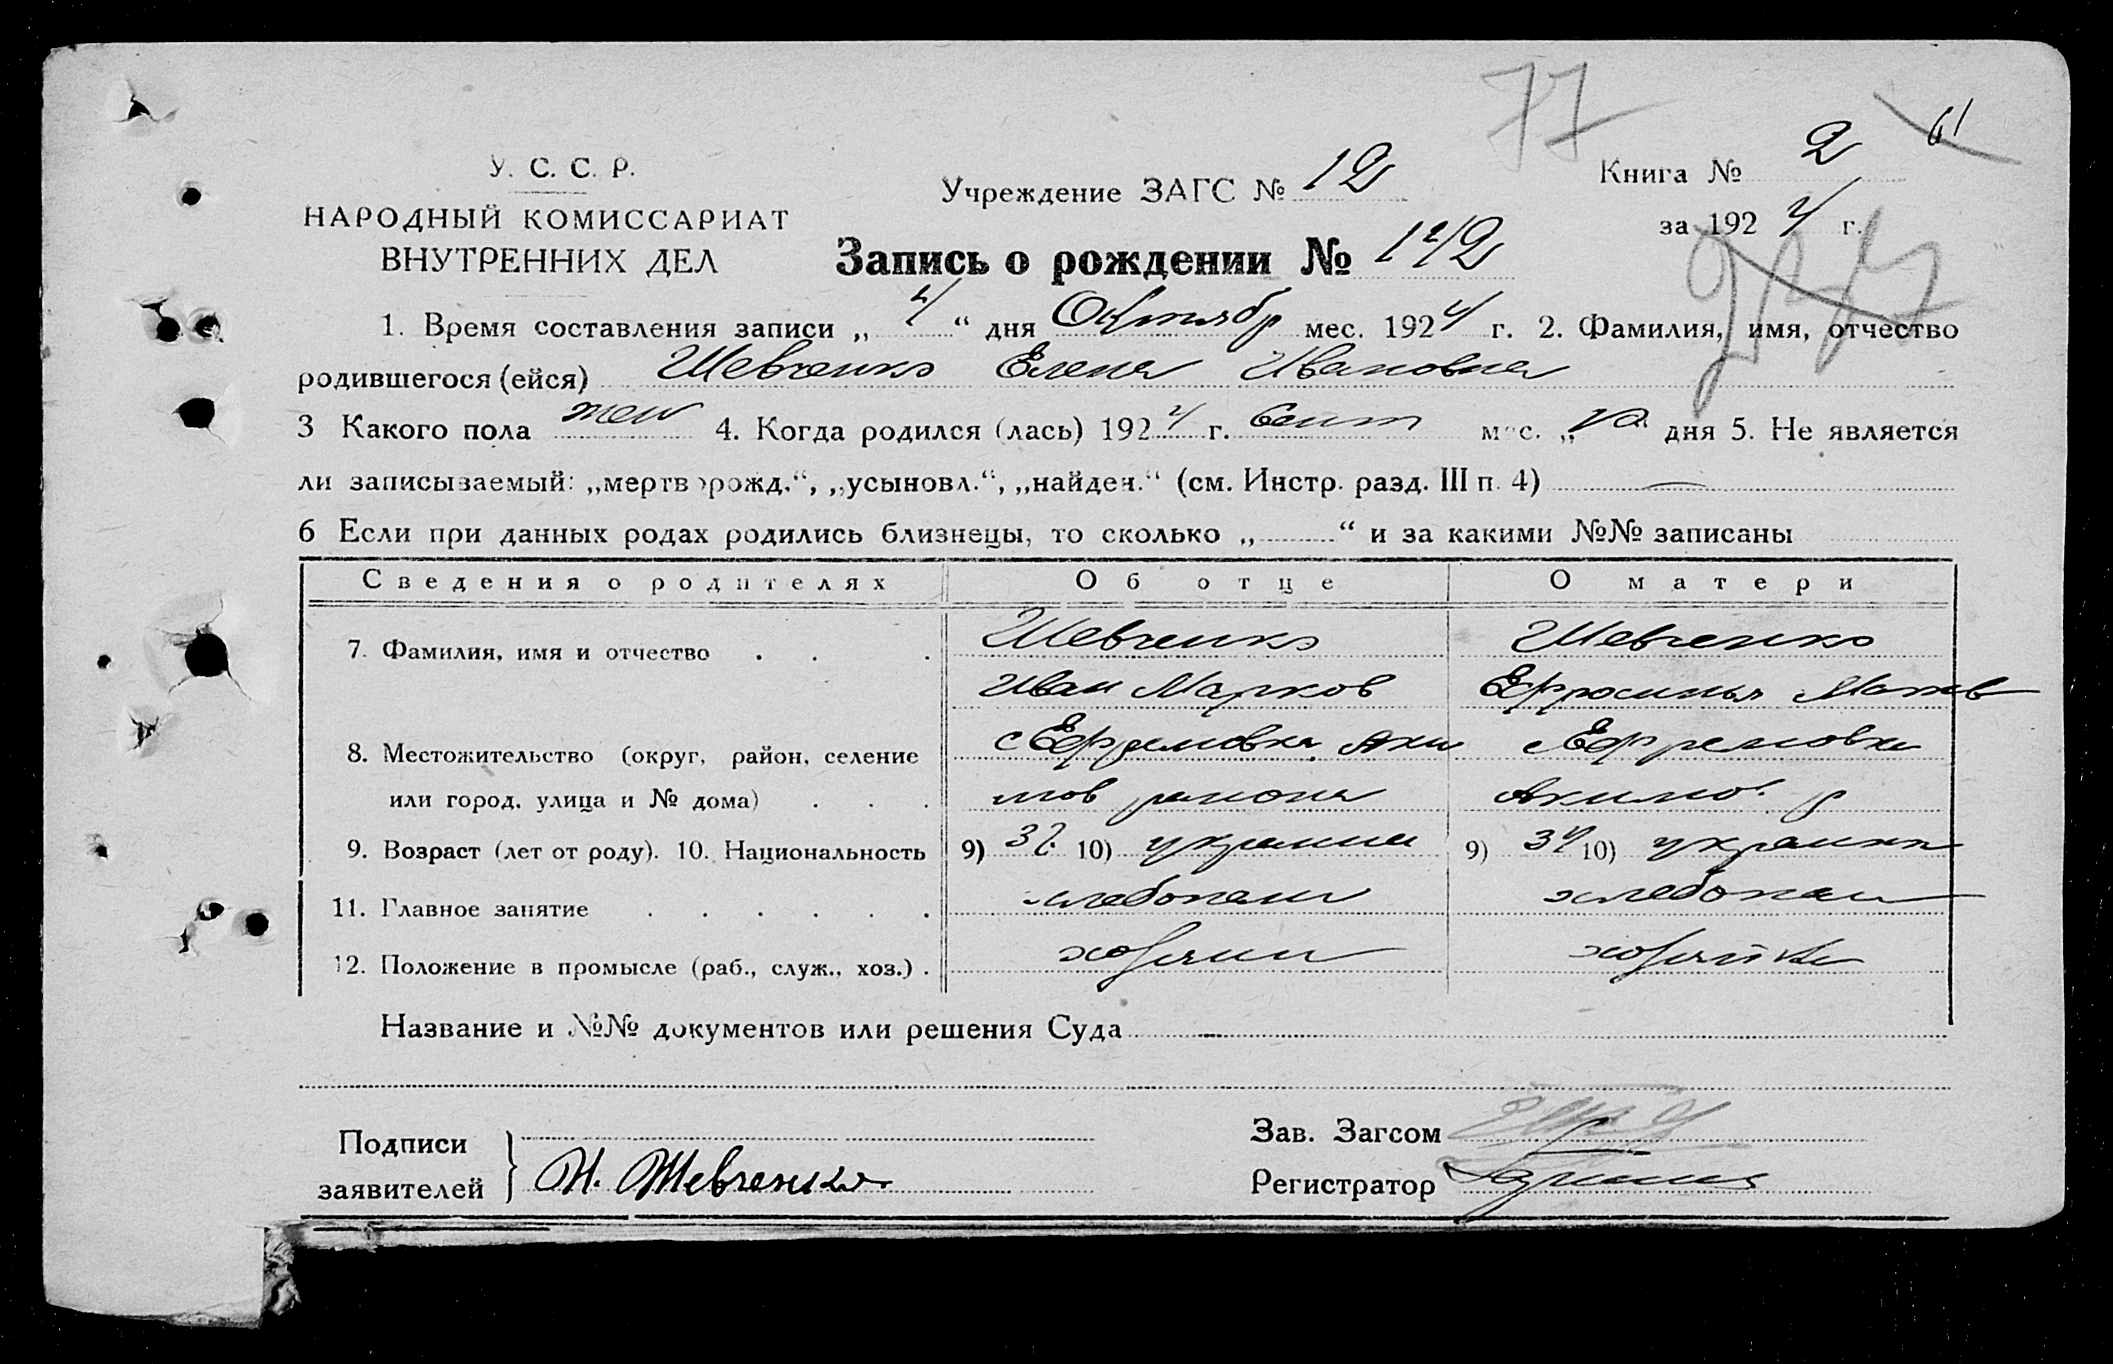 77
61
У. С. С. Р.
НАРОДНЫЙ КОМИССАРИАТ
ВНУТРЕННИХ ДЕЛ
Учреждение ЗАГС № 12
Книга № 2
за 1924 г.
Запись о рождении № 142
1. Время составления записи „4“ дня Октябр мес. 1924 г. 2. Фамилия, имя, отчество
родившегося (ейся) Шевченко Елена Ивановна
3 Какого пола жен 4. Когда родился (лась) 1924 г. Сент мес. „ дня 5. Не является
ли записываемый: „мертворожд.“, „усыновл.“, „найден.“ (см. Инстр. разд. III п. 4) —
6 Если при данных родах родились близнецы, то сколько „ “ и за какими №№ записаны
Сведения о родителях Об отце О матери
7. Фамилия, имя и отчество . . . Шевченко Шевченко
Иван Марков Ефросинья Матв
8. Местожительство (округ, район, селение с Ефремовка Аки с Ефремовка
или город, улица и № дома) . . . мов района Акимов. р
9. Возраст (лет от роду). 10. Национальность 9) 32. 10) украинец 9) 34 10) украинка
11. Главное занятие . . . . . . хлебопаш хлебопаш
12. Положение в промысле (раб., служ., хоз.) . хозяин хозяйка
Название и №№ документов или решения Суда —
Подписи
заявителей } И. Шевченко
Зав. Загсом
Регистратор